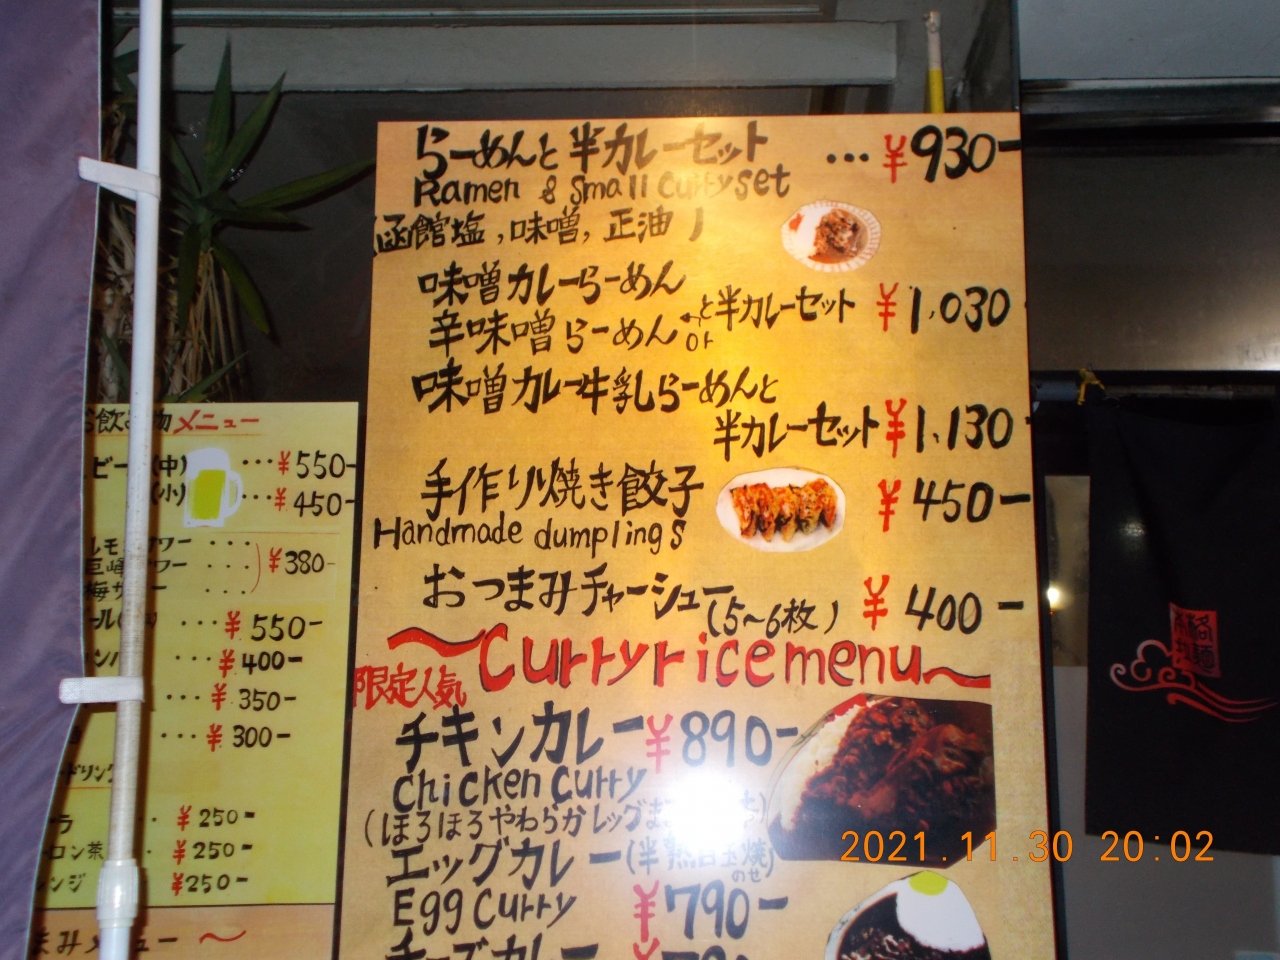 らーめんと半カレーセット ... ¥930-
Ramen & Small Curry set
(函館塩,味噌,正油)
味噌カレーらーめん
と半カレーセット ¥1,030
辛味噌らーめん or
味噌カレー牛乳らーめんと
半カレーセット ¥1,130-
手作り焼き餃子 ¥450-
Handmade dumplings
おつまみチャーシュー(5~6枚) ¥400-
~Curry rice menu~
限定人気
チキンカレー ¥890-
Chicken Curry
(ほろほろやわらかレッグ
エッグカレー(半熟目玉焼
のせ
Egg Curry ¥790-
チーズカレー
お飲み物メニュー
(中) ... ¥550-
(小) ... ¥450-
...
... ¥380-
...
... ¥550-
... ¥400-
... ¥350-
... ¥300-
ドリンク
¥250-
¥250-
¥250-
メニュー ~
2021.11.30 20:02